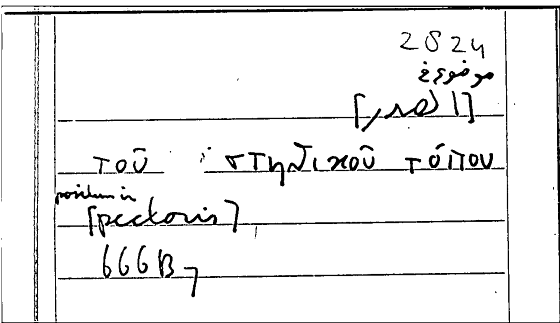 2824
[الصدر]
τοῦ στηθικοῦ τόπου
positum in
[pectoris]
666B7